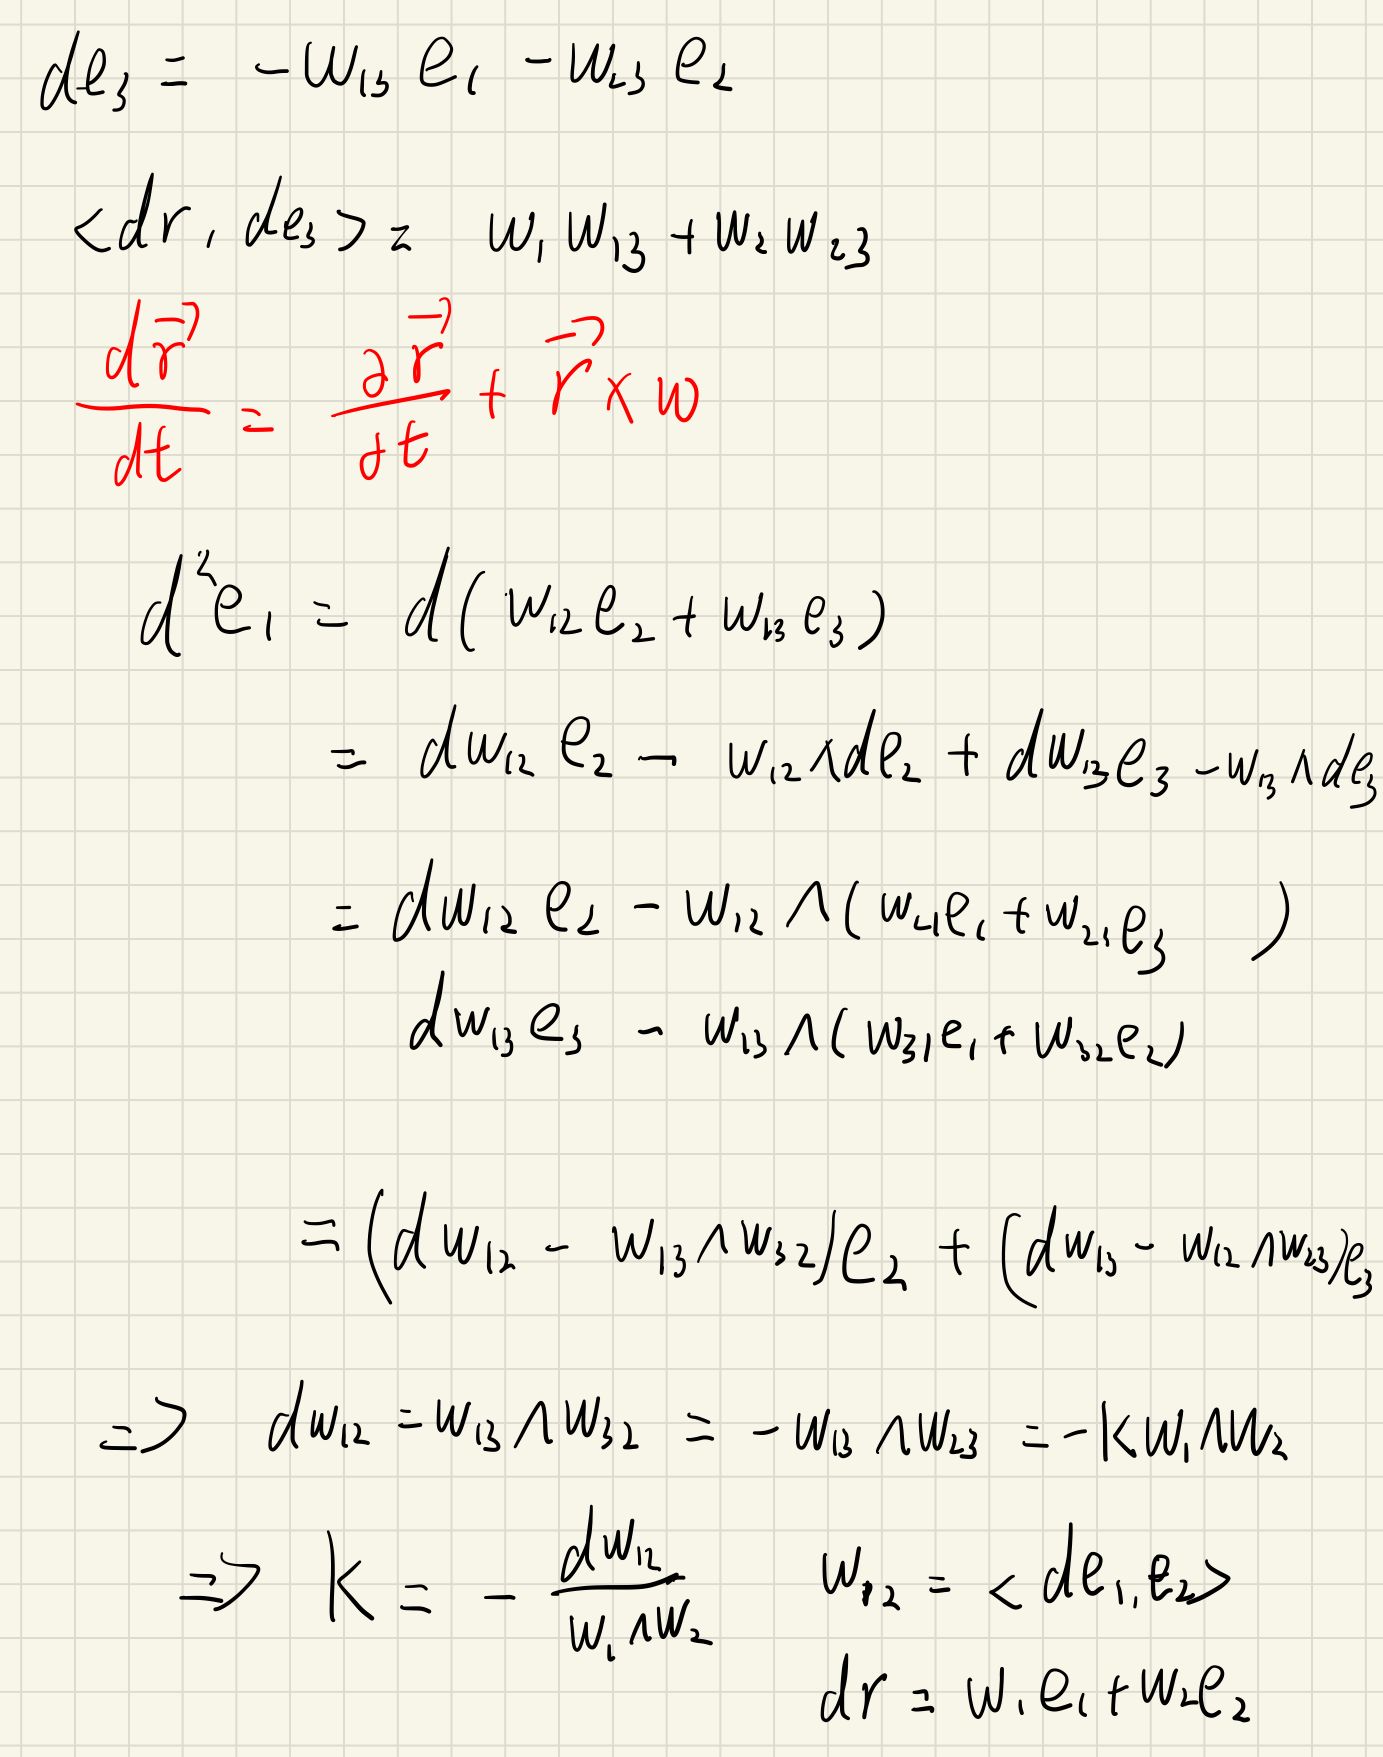 de₃ = -w₁₃ e₁ - w₂₃ e₂
<dr, de₃> = w₁ w₁₃ + w₂ w₂₃
dr⃗/dt = ∂r⃗/∂t + r⃗ × w
d²e₁ = d(w₁₂e₂ + w₁₃e₃)
= dw₁₂ e₂ - w₁₂∧de₂ + dw₁₃e₃ - w₁₃∧de₃
= dw₁₂ e₂ - w₁₂∧(w₂₁e₁ + w₂₃e₃ )
dw₁₃e₃ - w₁₃∧(w₃₁e₁ + w₃₂e₂)
= (dw₁₂ - w₁₃∧w₃₂)e₂ + (dw₁₃ - w₁₂∧w₂₃)e₃
=> dw₁₂ = w₁₃∧w₃₂ = -w₁₃∧w₂₃ = -Kw₁∧w₂
=> K = - dw₁₂/w₁∧w₂ w₁₂ = <de₁, e₂>
dr = w₁e₁ + w₂e₂